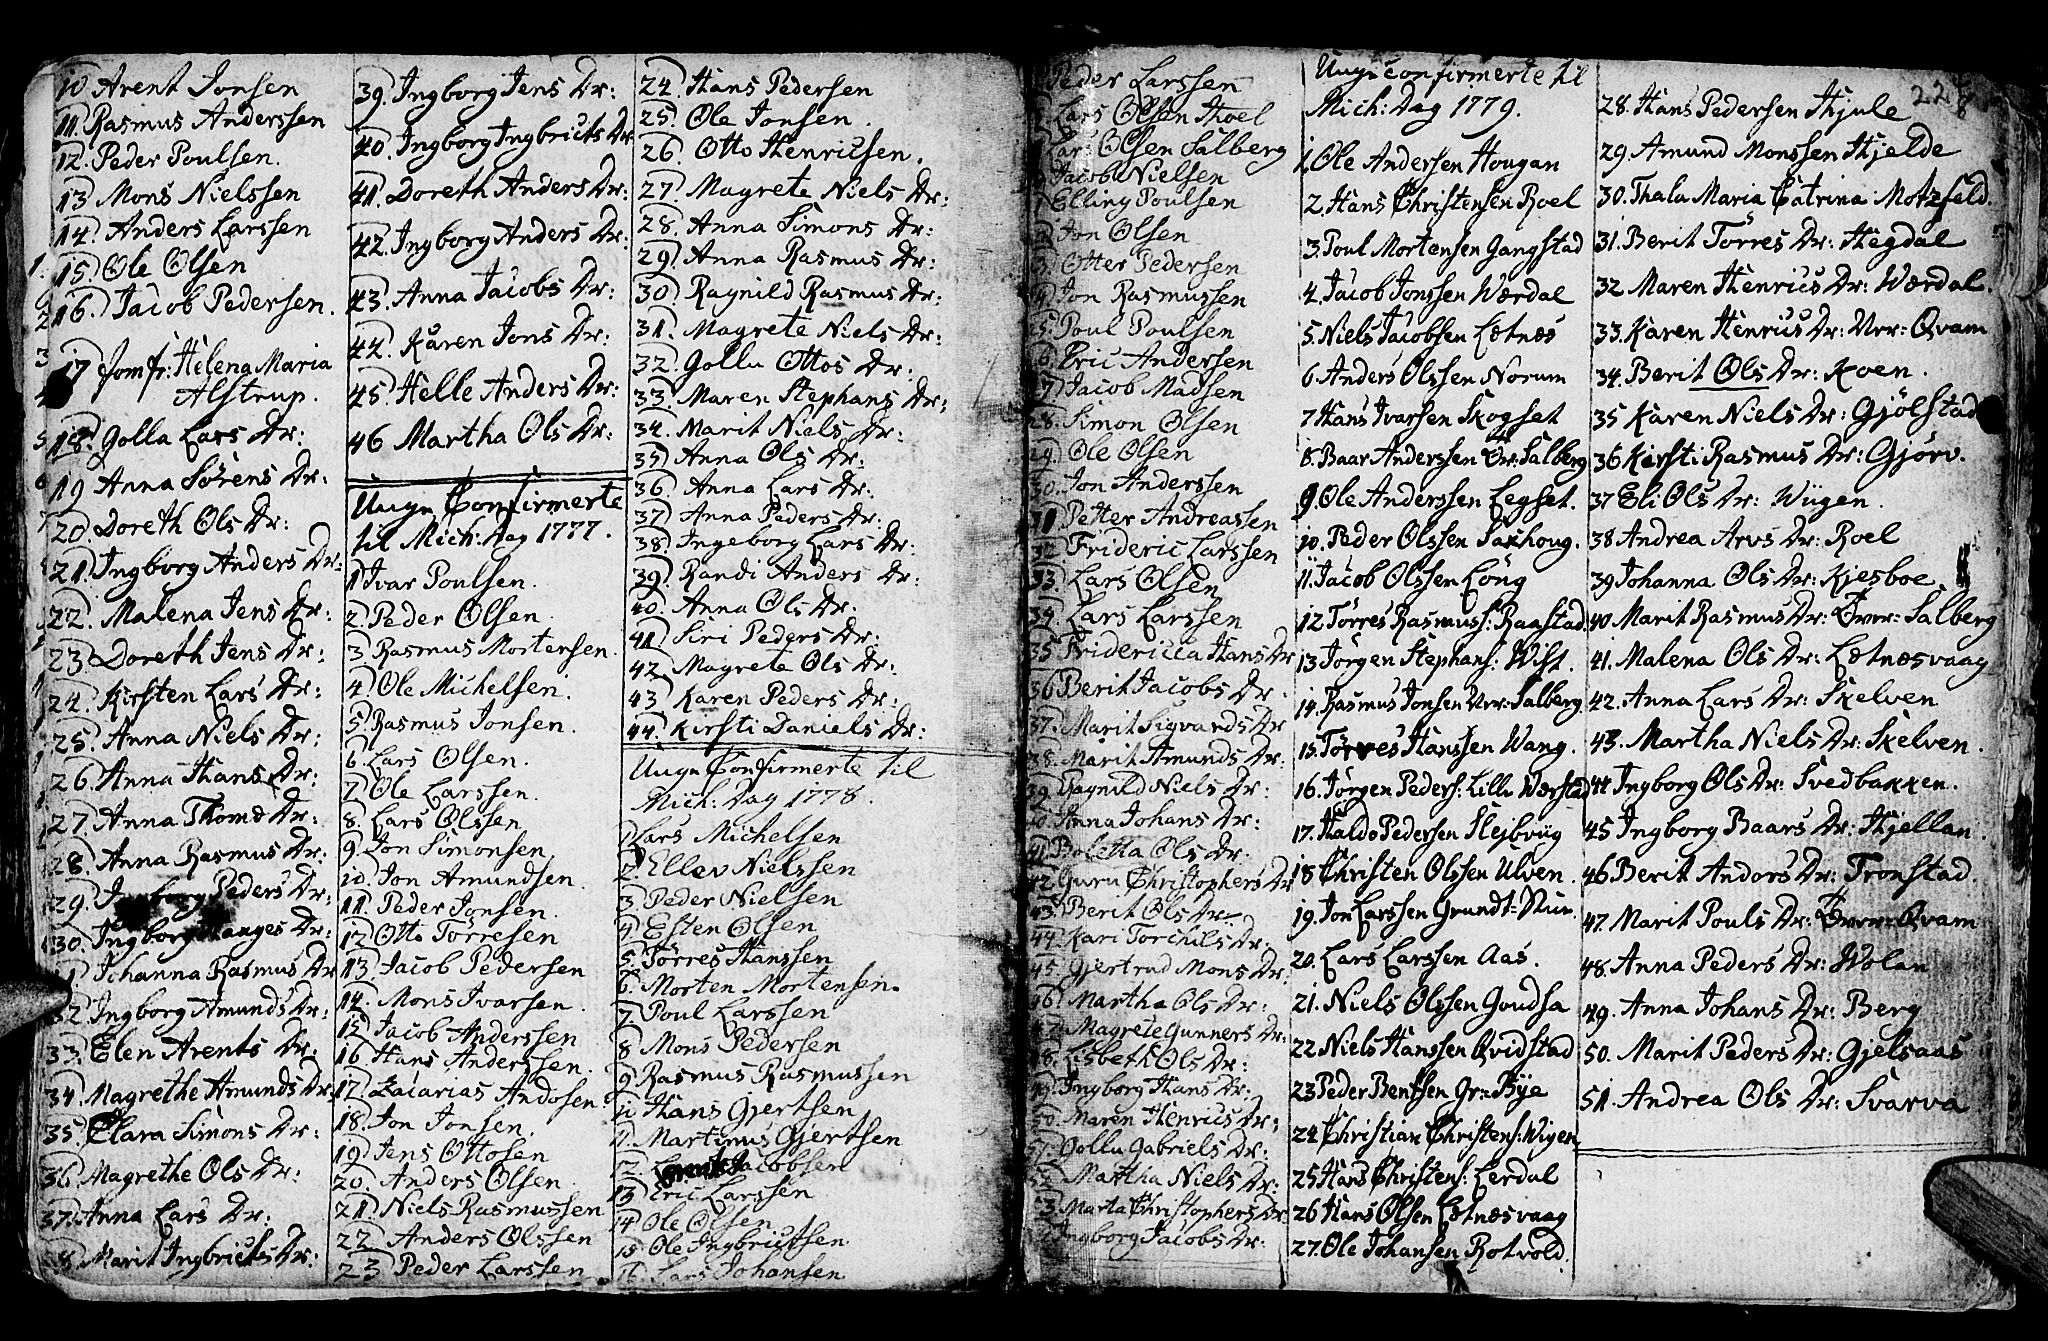 10. Arent Jonsen
11. Rasmus Anderssen
12. Peder Poulsen.
13. Mons Nielssen
14. Anders Larssen
15. Ole Olsen
16. Jacob Pedersen.
17 Jomfr: Helena Maria
Alstrup.
18. Golla Lars Dr:
19 Anna Sörens Dr:
20. Doreth Ols Dr:
21. Ingborg Anders Dr:
22. Malena Jens Dr:
23. Doreth Jens Dr:
24. Kirsten Lars Dr:
25. Anna Niels Dr:
26. Anna Hans Dr:
27. Anna Thomæ Dr:
28. Anna Rasmus Dr:
29. Ingborg Peders Dr:
30. Ingborg Hanges Dr:
31 Johanna Rasmus Dr
32 Ingborg Amunds Dr:
33. Elen Arents Dr:
34. Magrethe Amunds Dr:
35. Clara Simons Dr:
36. Magrethe Ols Dr:
37. Anna Lars Dr:
38. Marit Ingbricts Dr:
39. Ingborg Jens Dr:
40. Ingborg Ingbricts Dr
41. Doreth Anders Dr:
42. Ingborg Anders Dr:
43. Anna Jacobs Dr:
44. Karen Jons Dr:
45. Helle Anders Dr:
46 Martha Ols Dr:
Unge Confirmerte
til Mich: Dag 1777.
1 Ivar Poulsen.
2. Peder Olsen.
3. Rasmus Mortensen.
4 Ole Michelsen.
5 Rasmus Jonsen.
6. Lars Olsen.
7 Ole Larssen.
8. Lars Olssen
9. Jon Simonsen
10. Jon Amundsen.
11. Peder Jonsen.
12 Otto Törresen
13. Jacob Pedersen
14. Mons Ivarsen.
15 Jacob Anderssen
16 Hans Anderssen.
17. Zacarias Andosen.
18. Jon Jonsen.
19 Jens Ottosen
20. Anders Olsen.
21 Niels Rasmussen
22 Anders Olssen
23 Peder Larssen
24. Hans Pedersen
25. Ole Jonsen.
26. Otto Henricsen.
27. Magrete Niels Dr:
28. Anna Simons Dr:
29. Anna Rasmus Dr:
30 Ragnild Rasmus Dr:
31. Magrete Niels Dr:
32. Gollu Ottos Dr:
33. Maren Stephans Dr:
34. Marit Niels Dr:
35 Anna Ols Dr:
36 Anna Lars Dr:
37 Anna Peders Dr:
38. Ingeborg Lars Dr:
39. Randi Anders Dr:
40. Anna Ols Dr:
41 Siri Peders Dr:
42. Magrete Ols Dr:
43 Karen Peders Dr:
44. Kirsti Daniels Dr:
Unge Confirmerte til
Mich: Dag 1778.
1 Lars Michelsen
2. Ellev Nielssen
3. Peder Nielsen
4 Esten Olsen
5. Törres Hanssen
6. Morten Mortensen.
7 Poul Larssen
8 Mons Pedersen
9 Rasmus Rasmussen
10 Hans Gjertsen
11. Martinus Gjertsen
12. Jacobsen
13 Eric Larssen
14 Ole Olsen
15 Ole Ingbrictsen
16 Lars Johansen
Peder Larssen
Lars Olsen Hoel
Lars Olsen Salberg
Jacob Nielsen
Elling Poulsen
Jon Olsen
Otter Pedersen
Jon Rasmussen
25. Poul Poulsen
26 Eric Andersen
27 Jacob Madsen
28. Simon Olsen
29. Ole Olsen
30. Jon Anderssen
31 Petter Andreassen
32 Frideric Larssen
33. Lars Olsen
34 Lars Larssen
35 Fridericca Hans Dr
36 Berit Jacobs Dr.
37. Marit Sigvards Dr
38. Marit Amunds Dr:
39 Ragnild Niels Dr:
40 Anna Johans Dr:
41 Boletta Ols Dr.
42. Guru Christophers Dr
43. Berit Ols Dr:
44. Kari Torchils Dr:
45. Gjertrud Mons Dr.
46. Martha Ols Dr:
47. Magrete Gunners Dr:
48. Lisbeth Ols Dr:
49 Ingborg Hans Dr:
50. Maren Henrics Dr:
51. Gollu Gabriels Dr:
52. Martha Niels Dr:
53. Marta Christophers Dr.
Ingborg Jacobs Dr:
Unge confirmerte til
Mich: Dag 1779.
1. Ole Andersen Hougan
2. Hans Christensen Roel
3. Poul Mortensen Gangstad
4. Jacob Jonssen Wærdal
5. Niels Jacobsen Letnæs
6. Anders Olssen Norum
7 Hans Ivarsen Skogset
8. Baar Anderssen Øvr: Salberg
9. Ole Anderssen Legset.
10. Peder Olssen Saxhoug.
11. Jacob Olssen Löng
12 Törres Rasmuss: Raastad.
13 Jörgen Stephans: Wist.
14. Rasmus Jonsen Nvr: Salberg.
15. Törres Hanssen Wang.
16. Jörgen Peders: Lille Wærstad
17. Haldo Pedersen Hejbvüg
18 Christen Olssen Ulven.
19. Jon Larssen Grundt=Nun.
20. Lars Larssen Aas.
21. Niels Olssen Goudsa
22 Niels Hanssen Qvidstad
23 Peder Bentsen Gr: Bye
24 Christian Christens: Wigen
25 Hans Christens: Lerdal
26 Hans Olsen Letnæsvaag
27. Ole Johansen Rotvold.
28. Hans Pedersen Hjule
29 Amund Monssen Hjelde
30. Thala Maria Catrina Motzfeld.
31. Berit Törres Dr: Hegdal
32 Maren Henrics Dr: Wærdal.
33. Karen Henrics Dr: Nvr: Qvam
34. Berit Ols Dr: Koen.
35 Karen Niels Dr: Gjölstad
36 Kirsti Rasmus Dr: Gjörv.
37 Eli Ols Dr: Wügen.
38 Andrea Arvs Dr: Roel
39 Johanna Ols Dr: Kjesboe.
40 Marit Rasmus Dr: Øvr: Salberg
41. Malena Ols Dr: Letnæsvaag
42. Anna Lars Dr: Skelven
43. Martha Niels Dr: Skelven.
44 Ingborg Ols Dr: Svedbakken.
45 Ingborg Baars Dr: Hjellan.
46 Berit Anders Dr: Tronstad.
47. Marit Pouls Dr: Øvr: Qvam
48. Anna Peders Dr: Wolan
49. Anna Johans Dr: Berg
50. Marit Peders Dr: Gjelsaas
51. Andrea Ols Dr: Svarva